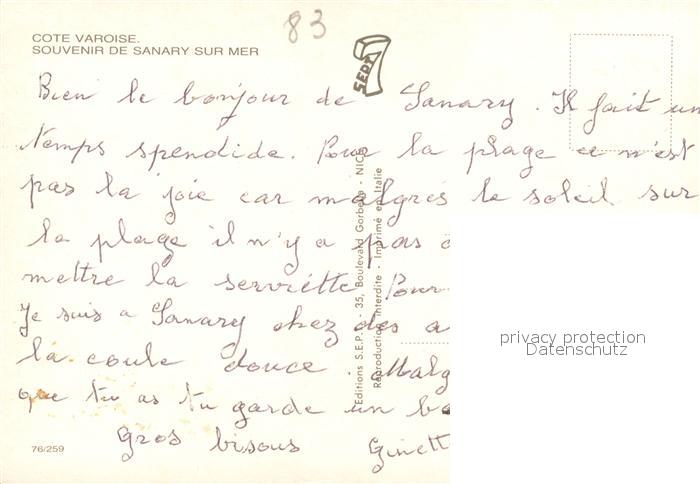 83
COTE VAROISE.
SOUVENIR DE SANARY SUR MER
SEPT
Bien le bonjour de Sanary. Il fait un
temps spendide. Pour la plage ce n'est
pas la joie car malgrés le soleil sur
la plage il n'y a pas
mettre la serviette Pour
Je suis a Sanary chez des a
la coule douce. Malg
que tu as tu garde un bo
Gros bisous Ginett
76/259
Editions S.E.P.T. - 35, Boulevard Gorbella - NICE
Reproduction interdite - Imprimé en Italie
privacy protection
Datenschutz